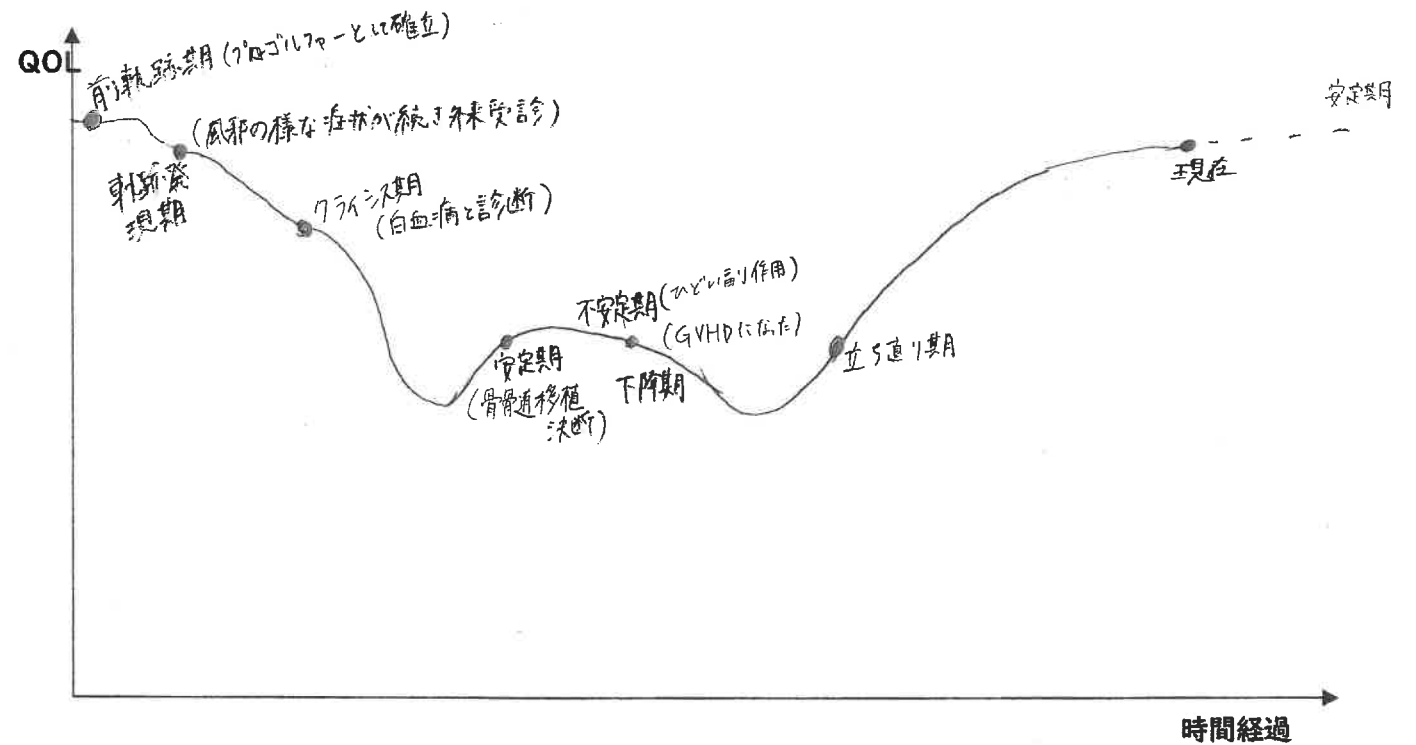 QOL
前軌跡期(プロゴルファーとして確立)
(風邪の様な症状が続き外来受診)
軌跡発
現期
クライシス期
(白血病と診断)
安定期
(骨髄移植
決断)
不安定期(ひどい副作用)
(GVHDになった)
下降期
立ち直り期
現在
安定期
時間経過